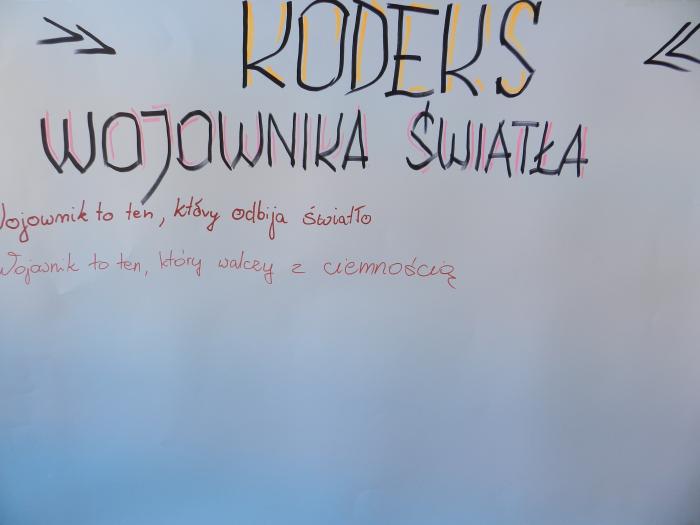 KODEKS
WOJOWNIKA ŚWIATŁA
Wojownik to ten, który odbija światło
Wojownik to ten, który walczy z ciemnością